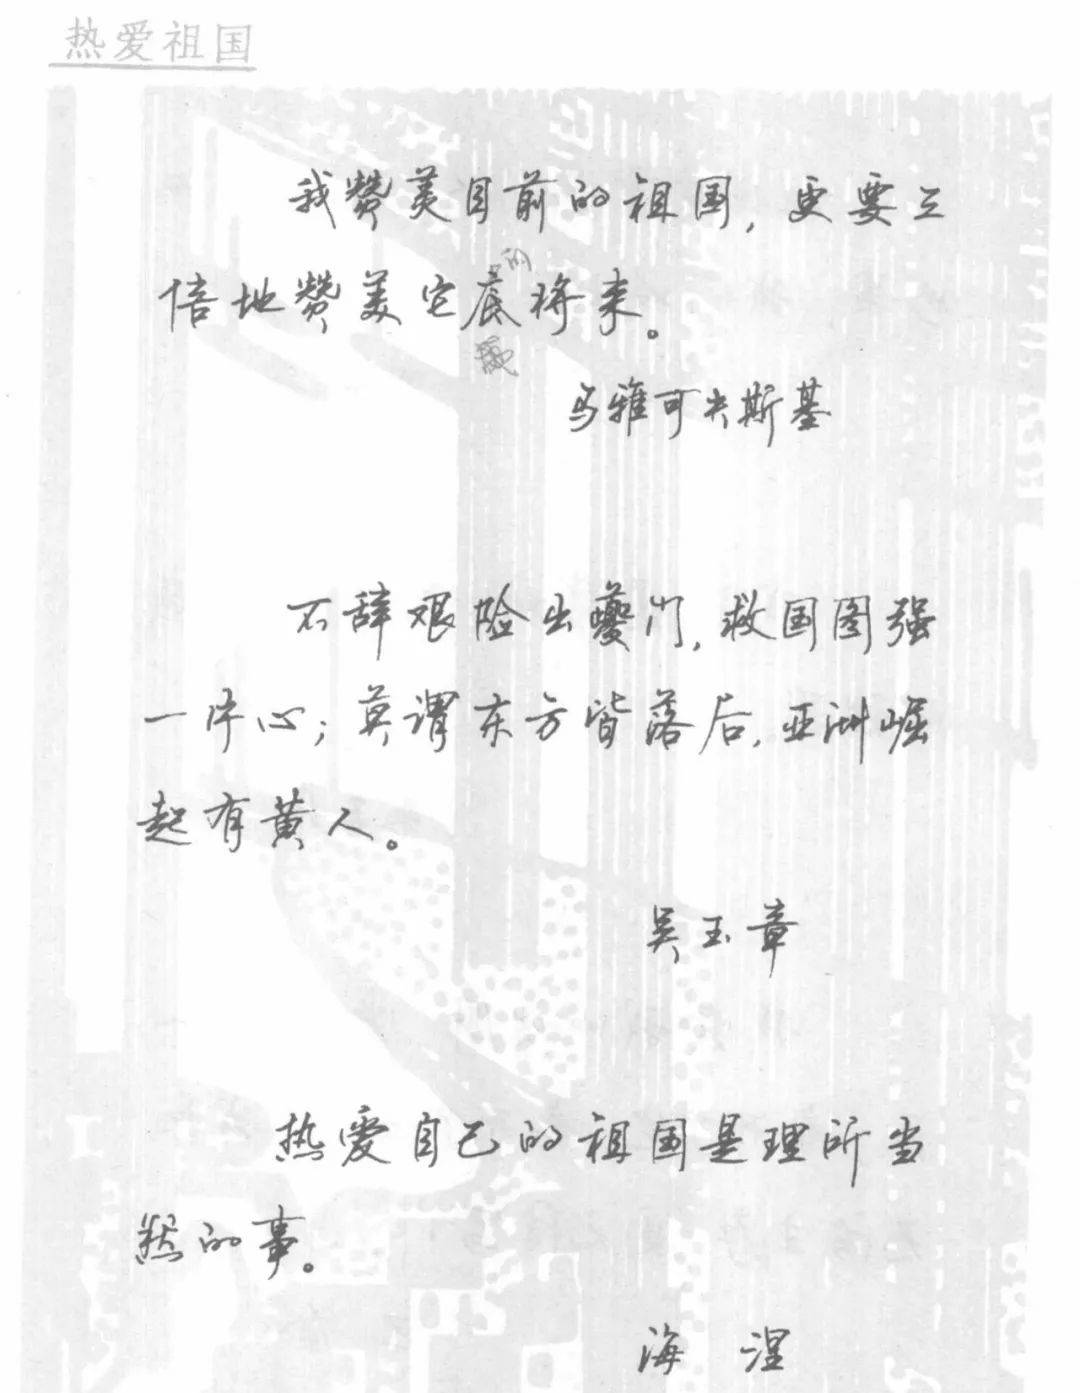 热爱祖国
我赞美目前的祖国，更要三
倍地赞美它底将来。
的
马雅可夫斯基
不辞艰险出夔门，救国图强
一片心；莫谓东方皆落后，亚洲崛
起有黄人。
吴玉章
热爱自己的祖国是理所当
然的事。
海涅